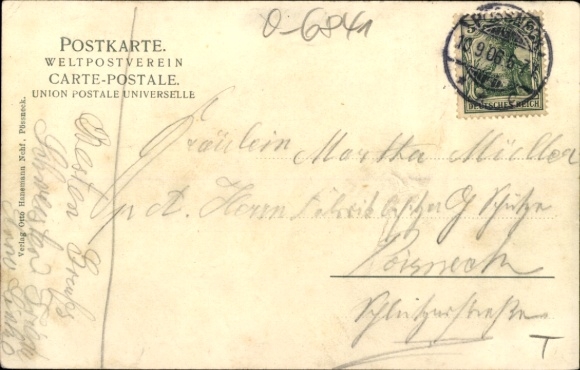 O-6841
POSTKARTE.
WELTPOSTVEREIN
CARTE-POSTALE.
UNION POSTALE UNIVERSELLE
PÖSSNECK
10.9.06.6-7
DEUTSCHES REICH
Verlag Otto Hanemann Nchf., Pössneck.
Besten Gruß
Fräulein Martha Müller
p A. Herrn Fabrikbesitzer G Schütze
Pössneck
Schleizerstraße
T